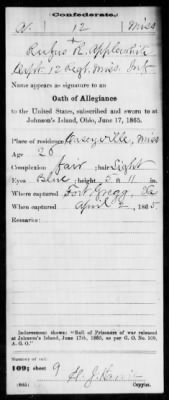 Confederate.
A. 12 Miss
Rufus R. Applewhite
Capt 12 Regt. Miss. Inf
Name appears as signature to an
Oath of Allegiance
to the United States, subscribed and sworn to at
Johnson's Island, Ohio, June 17, 1865.
Place of residence Caseyville, Miss
Age 26
Complexion fair ; hair Light
Eyes Blue ; height 5 ft. 11 in.
Where captured Fort Gregg, Va
When captured April 2, 1865
Remarks:
Indorsement shows: "Roll of Prisoners of war released
at Johnson's Island, June 17th, 1865, as per G. O. No. 109,
A. G. O."
Number of roll:
109; sheet 9
(685) Copyist.